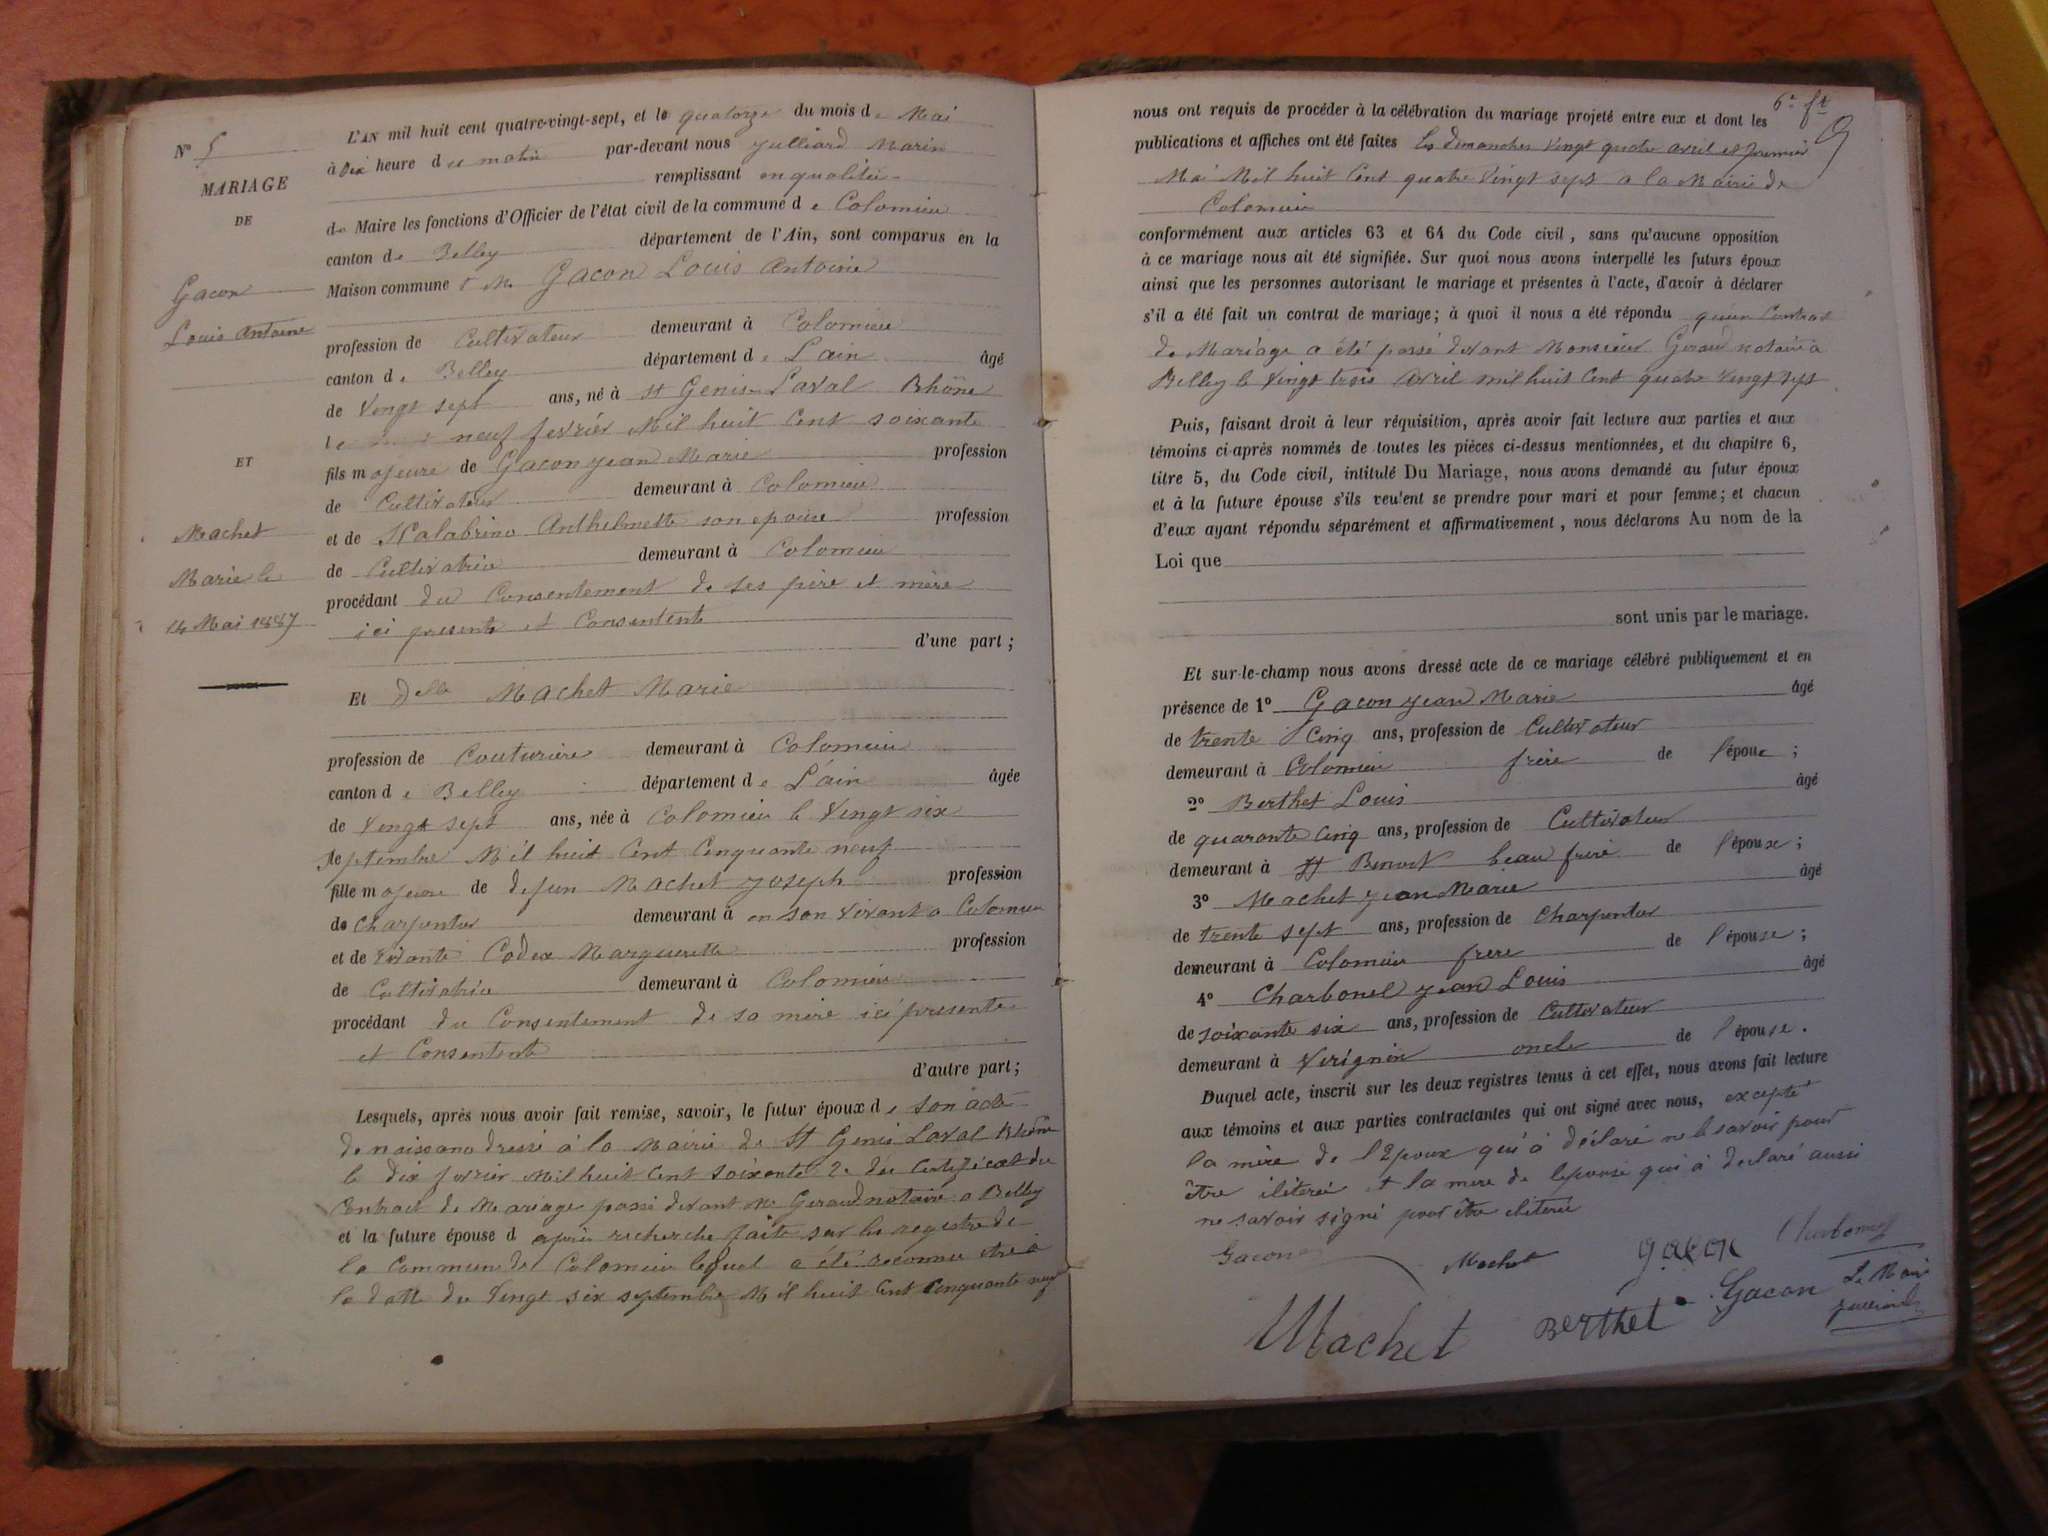 N° 5
MARIAGE
DE
Gacon
Louis Antoine
ET
Machet
Marie le
14 Mai 1887
L'AN mil huit cent quatre-vingt-sept, et le quatorze du mois de Mai
à Dix heure du matin par-devant nous Julliard Marin
remplissant en qualitée
de Maire les fonctions d'Officier de l'état civil de la commune de Colomieu
canton de Belley département de l'Ain, sont comparus en la
Maison commune Gacon Louis Antoine
profession de Cultivateur demeurant à Colomieu
canton de Belley département de L'ain âgé
de Vingt sept ans, né à St Genis Laval Rhône
le neuf fevrier Mil huit Cent soixante
fils majeure de Gacon Jean Marie profession
de Cultivateur demeurant à Colomieu
et de Anthelmette son epouse profession
de Cultivatrice demeurant à Colomieu
procédant du Consentement de ses père et mère
ici presents et Consentent
d'une part ;
Et Delle Machet Marie
profession de Couturière demeurant à Colomieu
canton de Belley département de L'ain âgée
de Vingt sept ans, née à Colomieu le Vingt six
septembre Mil huit Cent Cinquante neuf
fille majeure de defun Machet Joseph profession
de Charpentier demeurant à en son vivant a Colomieu
et de vivante Codex Marguerette profession
de Cultivatrice demeurant à Colomieu
procédant du Consentement de sa mère ici presente
et Consentente
d'autre part ;
Lesquels, après nous avoir fait remise, savoir, le futur époux de son acte
de naissance dressé à la Mairie de St Genis Laval Rhône
le dix fevrier Mil huit Cent soixante 2e du Certificat du
Contract de Mariage passé devant Me Geraud notaire a Belley
et la future épouse d après recherche faite sur les registre de
la Commune de Colomieu lequel a été reconnu être à
la datte du Vingt six septembre Mil huit Cent Cinquante neuf
6e ft
nous ont requis de procéder à la célébration du mariage projeté entre eux et dont les
publications et affiches ont été faites les dimanches vingt quatre avril et premier
Mai Mil huit Cent quatre Vingt sept a la Mairie de
Colomieu
conformément aux articles 63 et 64 du Code civil, sans qu'aucune opposition
à ce mariage nous ait été signifiée. Sur quoi nous avons interpellé les futurs époux
ainsi que les personnes autorisant le mariage et présentes à l'acte, d'avoir à déclarer
s'il a été fait un contrat de mariage ; à quoi il nous a été répondu qu'un Contrat
de Mariage a été passé devant Monsieur Geraud notaire a
Belley le Vingt trois Avril mil huit Cent quatre Vingt sept
Puis, faisant droit à leur réquisition, après avoir fait lecture aux parties et aux
témoins ci-après nommés de toutes les pièces ci-dessus mentionnées, et du chapitre 6,
titre 5, du Code civil, intitulé Du Mariage, nous avons demandé au futur époux
et à la future épouse s'ils veulent se prendre pour mari et pour femme ; et chacun
d'eux ayant répondu séparément et affirmativement, nous déclarons Au nom de la
Loi que
sont unis par le mariage.
Et sur-le-champ nous avons dressé acte de ce mariage célébré publiquement et en
présence de 1° Gacon Jean Marie âgé
de trente Cinq ans, profession de Cultivateur
demeurant à Colomieu frère de l'époux ;
2° Berthet Louis âgé
de quarante Cinq ans, profession de Cultivateur
demeurant à St Benoit beau frere de l'époux ;
3° Machet Jean Marie âgé
de trente sept ans, profession de Charpentier
demeurant à Colomieu frere de l'épouse ;
4° Charbonel Jean Louis âgé
de soixante six ans, profession de Cultivateur
demeurant à Virignin oncle de l'épouse.
Duquel acte, inscrit sur les deux registres tenus à cet effet, nous avons fait lecture
aux témoins et aux parties contractantes qui ont signé avec nous, excepté
la mère de l'Epoux qui à déclaré ne le savoir pour
être iliterée et la mere de lepouse qui à declaré aussi
ne savoir signé pour être eliterée
Gacon Machet gacon Charbonel
Machet Berthet Gacon Le Maire
Julliard